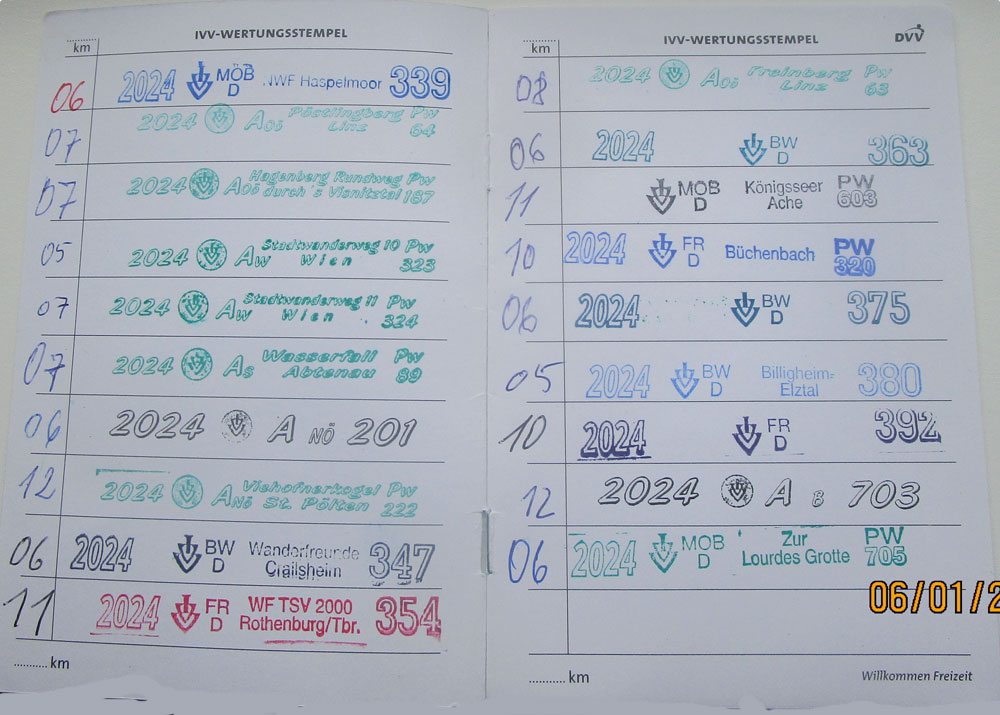 IVV-WERTUNGSSTEMPEL
km
06 2024 MÖB D WF Haspelmoor 339
07 2024 AOÖ Pöstlingberg Linz Pw 64
07 2024 AOÖ Hagenberg Rundweg durch's Visnitztal Pw 187
05 2024 AW Stadtwanderweg 10 Wien Pw 323
07 2024 AW Stadtwanderweg 11 Wien Pw 324
07 2024 AS Wasserfall Abtenau Pw 89
06 2024 A NÖ 201
12 2024 ANÖ Viehofnerkogel St. Pölten Pw 222
06 2024 BW D Wanderfreunde Crailsheim 347
11 2024 FR D WF TSV 2000 Rothenburg/Tbr. 354
.......... km
IVV-WERTUNGSSTEMPEL
DVV
km
08 2024 AOÖ Freinberg Linz Pw 63
06 2024 BW D 363
11 MÖB D Königsseer Ache PW 603
10 2024 FR D Büchenbach PW 320
06 2024 BW D 375
05 2024 BW D Billigheim-Elztal 380
10 2024 FR D 392
12 2024 A B 703
06 2024 MÖB D Zur Lourdes Grotte PW 705
.......... km
Willkommen Freizeit
06/01/2